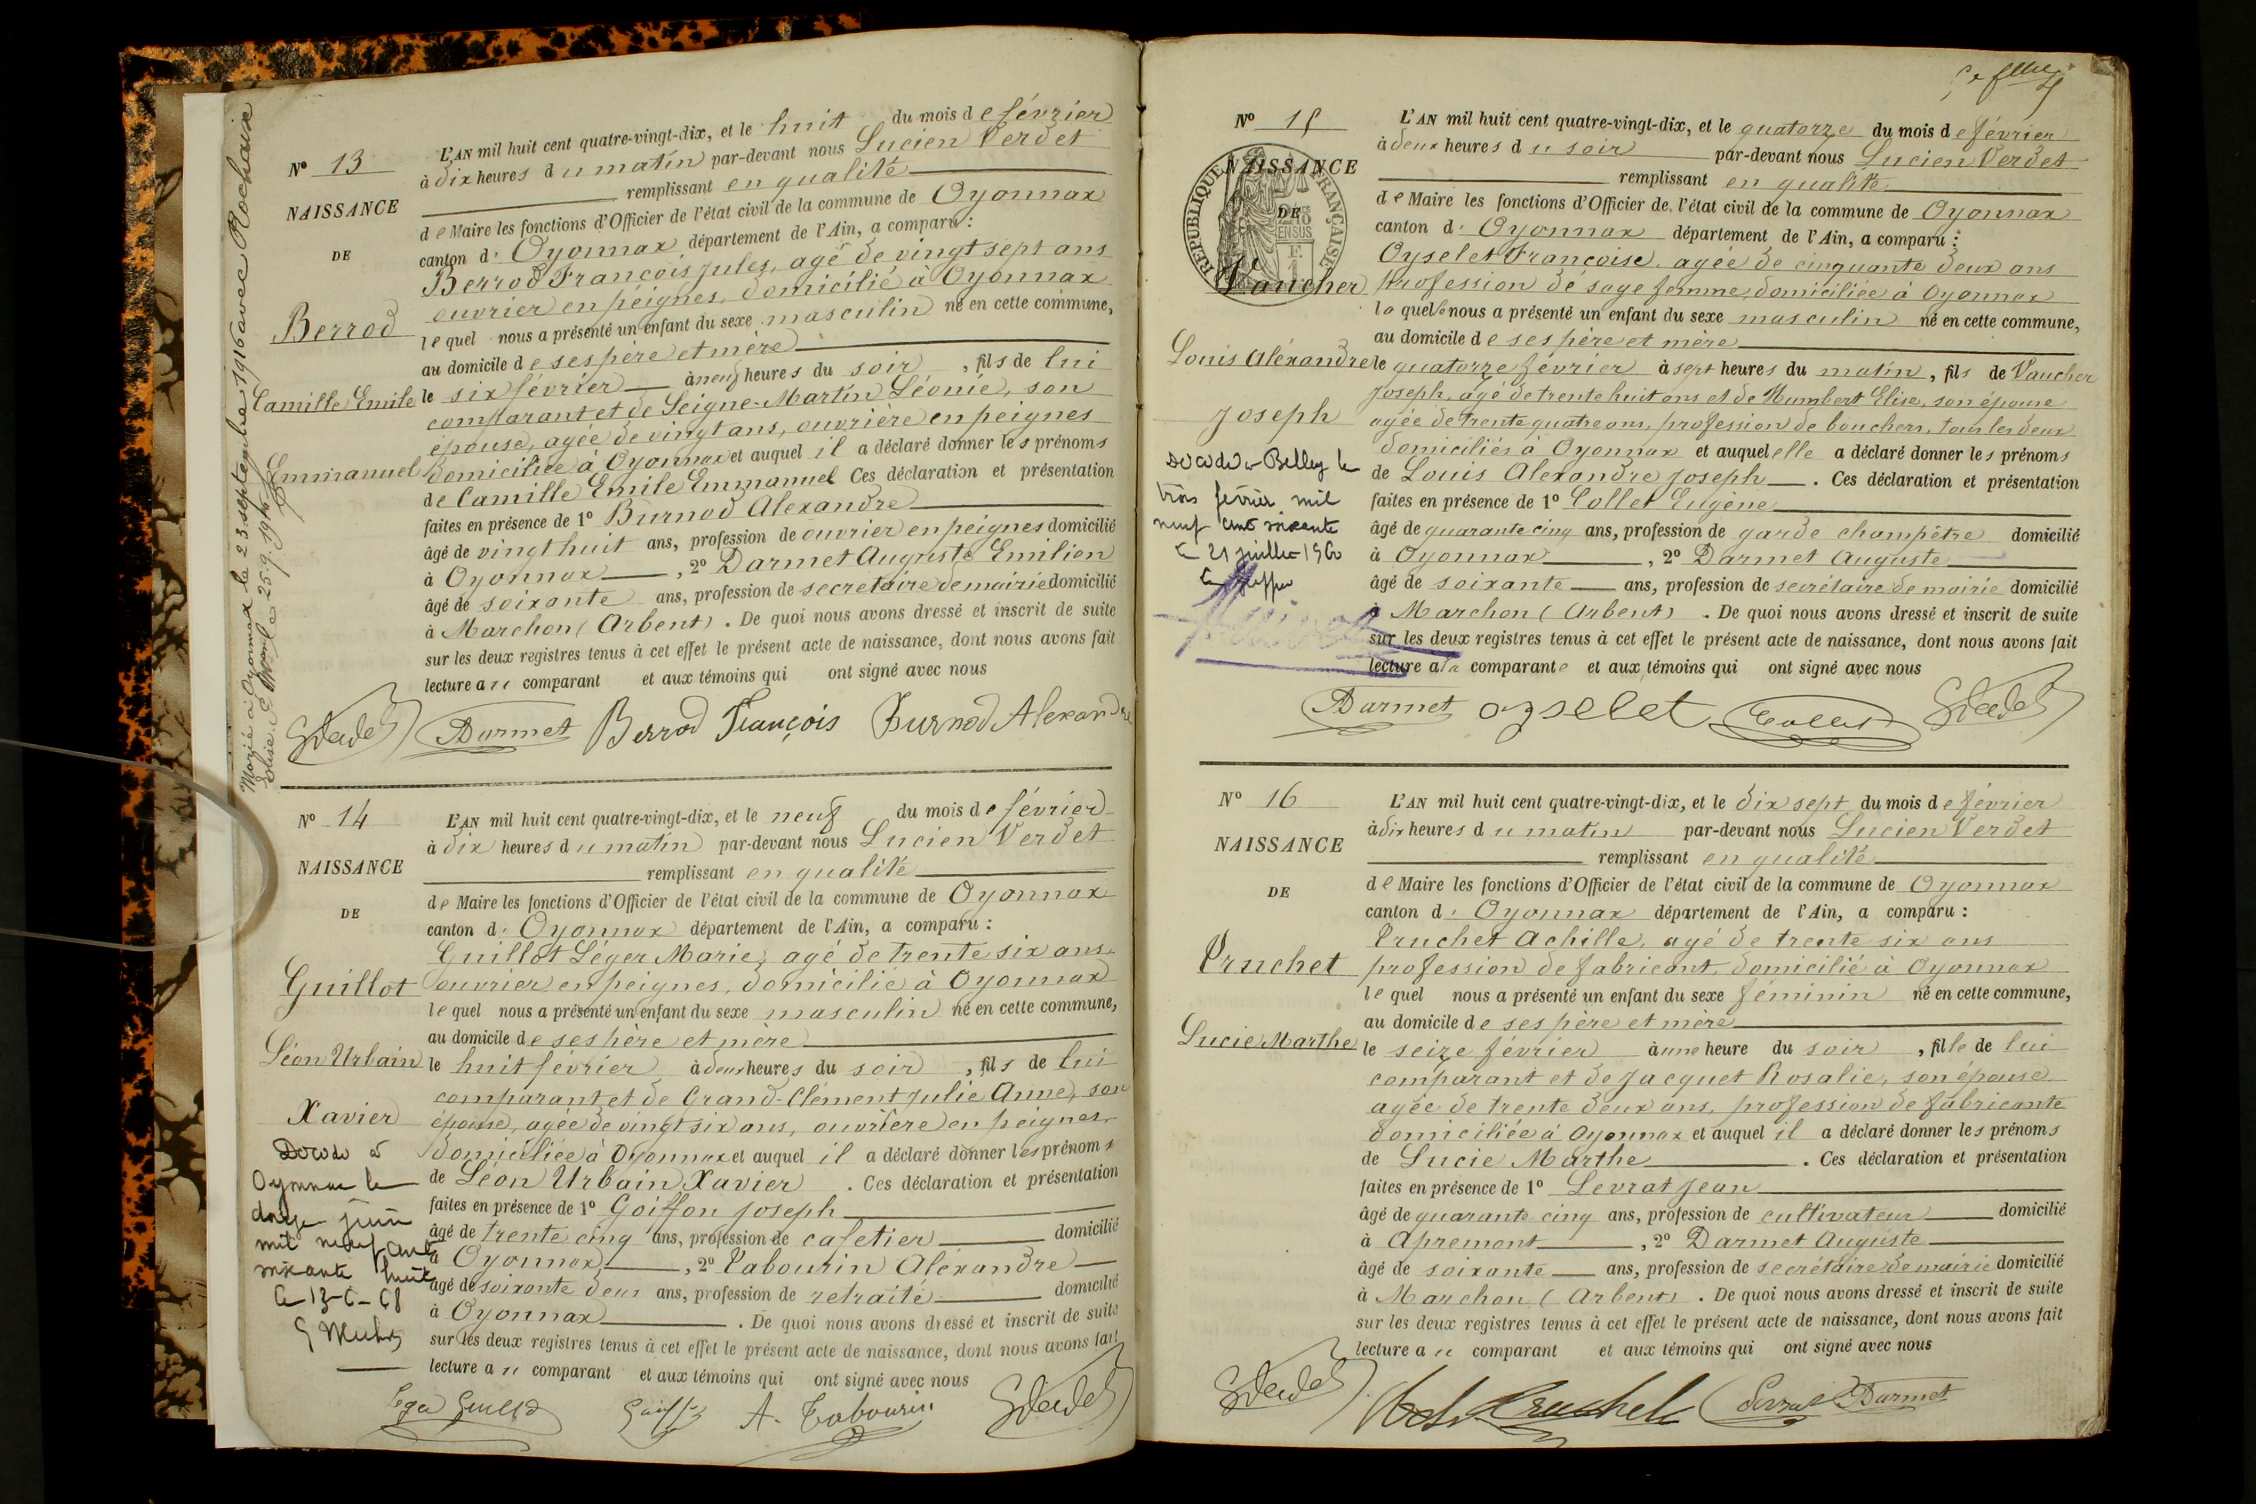 Marié à Oyonnax le 23 septembre 1916 avec Rochaix
Elise.
25.9.1916
N° 13
NAISSANCE
DE
Berrod
Camille Emile
Emmanuel
L'AN mil huit cent quatre-vingt-dix, et le huit du mois de février
à dix heures du matin par-devant nous Lucien Verdet
remplissant en qualité
de Maire les fonctions d'Officier de l'état civil de la commune de Oyonnax
canton d' Oyonnax département de l'Ain, a comparu :
Berrod François Jules, agé de vingt sept ans
ouvrier en peignes, domicilié à Oyonnax
lequel nous a présenté un enfant du sexe masculin né en cette commune,
au domicile de ses père et mère
le six février à neuf heures du soir, fils de lui
comparant et de Seigne-Martin Léonie, son
épouse, agée de vingt ans, ouvrière en peignes
domiciliée à Oyonnax et auquel il a déclaré donner les prénoms
de Camille Emile Emmanuel Ces déclaration et présentation
faites en présence de 1° Burnod Alexandre
âgé de vingt huit ans, profession de ouvrier en peignes domicilié
à Oyonnax, 2° Darmet Auguste Emilien
âgé de soixante ans, profession de secrétaire de mairie domicilié
à Marchon (Arbent). De quoi nous avons dressé et inscrit de suite
sur les deux registres tenus à cet effet le présent acte de naissance, dont nous avons fait
lecture au comparant et aux témoins qui ont signé avec nous
Darmet Berrod François Burnod Alexandre
N° 14
NAISSANCE
DE
Guillot
Léon Urbain
Xavier
Décédé à
Oyonnax le
douze juin
mil neuf cent
soixante huit
Le 13-6-68
L'AN mil huit cent quatre-vingt-dix, et le neuf du mois de février
à dix heures du matin par-devant nous Lucien Verdet
remplissant en qualité
de Maire les fonctions d'Officier de l'état civil de la commune de Oyonnax
canton d' Oyonnax département de l'Ain, a comparu :
Guillot Léger Marie, agé de trente six ans
ouvrier en peignes, domicilié à Oyonnax
lequel nous a présenté un enfant du sexe masculin né en cette commune,
au domicile de ses père et mère
le huit février à deux heures du soir, fils de lui
comparant et de Grand-Clément Julie Anne, son
épouse, agée de vingt six ans, ouvrière en peignes
domiciliée à Oyonnax et auquel il a déclaré donner les prénoms
de Léon Urbain Xavier. Ces déclaration et présentation
faites en présence de 1° Goiffon Joseph
âgé de trente cinq ans, profession de cafetier domicilié
à Oyonnax, 2° Tabourin Aléxandre
âgé de soixante deux ans, profession de retraité domicilié
à Oyonnax. De quoi nous avons dressé et inscrit de suite
sur les deux registres tenus à cet effet le présent acte de naissance, dont nous avons fait
lecture au comparant et aux témoins qui ont signé avec nous
A. Tabourin
N° 15
NAISSANCE
DE
RÉPUBLIQUE FRANÇAISE
Vaucher
Louis Aléxandre
Joseph
décédé à Belley le
trois février mil
neuf cent soixante
Le 21 juillet 1960
L'AN mil huit cent quatre-vingt-dix, et le quatorze du mois de février
à deux heures du soir par-devant nous Lucien Verdet
remplissant en qualité
de Maire les fonctions d'Officier de l'état civil de la commune de Oyonnax
canton d' Oyonnax département de l'Ain, a comparu :
Oyselet Francoise, agée de cinquante deux ans
profession de sage femme, domiciliée à Oyonnax
laquelle nous a présenté un enfant du sexe masculin né en cette commune,
au domicile de ses père et mère
le quatorze février à sept heures du matin, fils de Vaucher
Joseph, agé de trente huit ans et de Humbert Elise, son épouse
agée de trente quatre ans, profession de bouchers, tous les deux
domiciliés à Oyonnax et auquel elle a déclaré donner les prénoms
de Louis Alexandre Joseph. Ces déclaration et présentation
faites en présence de 1° Collet Eugène
âgé de quarante cinq ans, profession de garde champêtre domicilié
à Oyonnax, 2° Darmet Auguste
âgé de soixante ans, profession de secrétaire de mairie domicilié
à Marchon (Arbent). De quoi nous avons dressé et inscrit de suite
sur les deux registres tenus à cet effet le présent acte de naissance, dont nous avons fait
lecture a la comparante et aux témoins qui ont signé avec nous
Darmet oyselet Collet
N° 16
NAISSANCE
DE
Pruchet
Lucie Marthe
L'AN mil huit cent quatre-vingt-dix, et le dix sept du mois de février
à dix heures du matin par-devant nous Lucien Verdet
remplissant en qualité
de Maire les fonctions d'Officier de l'état civil de la commune de Oyonnax
canton d' Oyonnax département de l'Ain, a comparu :
Pruchet Achille, agé de trente six ans
profession de fabricant, domicilié à Oyonnax
lequel nous a présenté un enfant du sexe féminin né en cette commune,
au domicile de ses père et mère
le seize février à une heure du soir, fille de lui
comparant et de Jacquet Rosalie, son épouse
agée de trente deux ans, profession de fabricante
domiciliée à Oyonnax et auquel il a déclaré donner les prénoms
de Lucie Marthe. Ces déclaration et présentation
faites en présence de 1° Levrat Jean
âgé de quarante cinq ans, profession de cultivateur domicilié
à Apremont, 2° Darmet Auguste
âgé de soixante ans, profession de secrétaire de mairie domicilié
à Marchon (Arbent). De quoi nous avons dressé et inscrit de suite
sur les deux registres tenus à cet effet le présent acte de naissance, dont nous avons fait
lecture au comparant et aux témoins qui ont signé avec nous
Pruchet Levrat Darmet